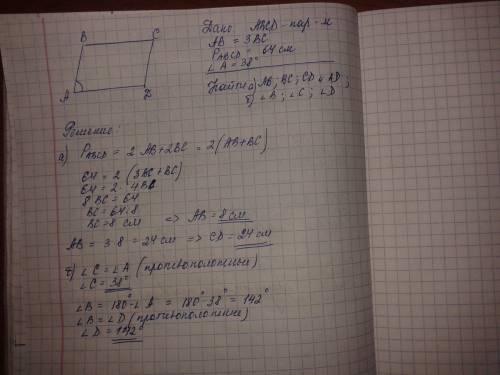 B C
A D
Дано: ABCD - пар-м
AB = 3BC
P ABCD = 64 см
∠A = 38°
Найти: а) AB; BC; CD и AD;
б) ∠B; ∠C; ∠D
Решение:
а) P ABCD = 2 AB+2BC = 2(AB+BC)
64 = 2 (3BC+BC)
64 = 2 · 4BC
8 BC = 64
BC = 64:8
BC = 8 см => AB = 8 см
AB = 3·8 = 24 см => CD = 24 см
б) ∠C = ∠A (противоположные)
∠C = 38°
∠B = 180°-∠A = 180°-38° = 142°
∠B = ∠D (противоположные)
∠D = 142°